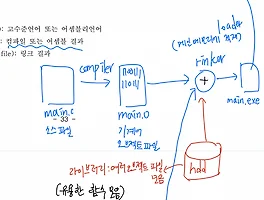 : 고수준언어 또는 어셈블리언어
: 컴파일 또는 어셈블 결과
file): 링크 결과
loader
(메인메모리에 적재)
compiler
linker
main.c
main.o
main.exe
- 33 -
소스파일
기계어
오브젝트파일
hdd
라이브러리 : 여러 오브젝트 파일
모음
(유용한 함수 모음)